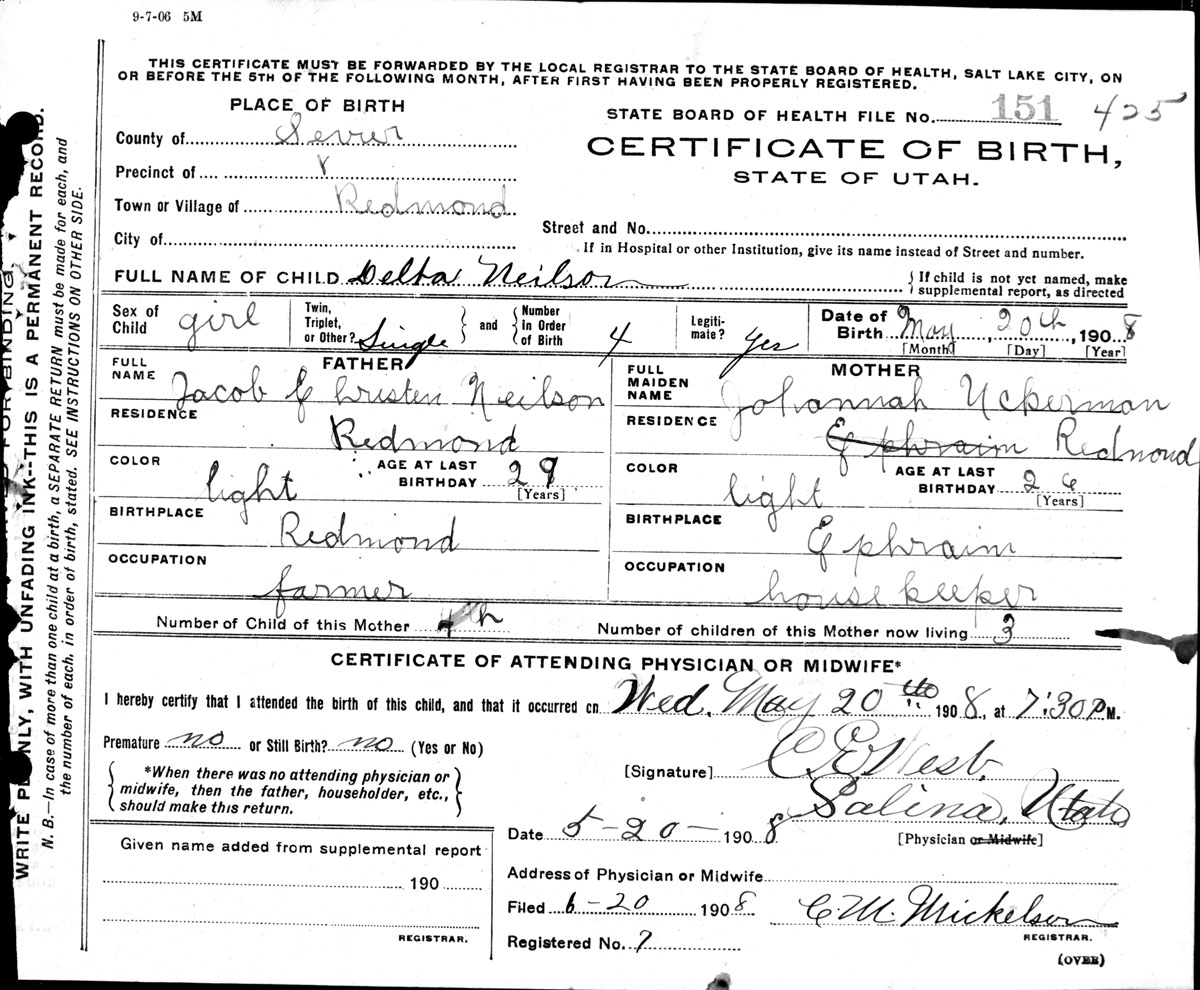 9-7-06 5M
THIS CERTIFICATE MUST BE FORWARDED BY THE LOCAL REGISTRAR TO THE STATE BOARD OF HEALTH, SALT LAKE CITY, ON
OR BEFORE THE 5TH OF THE FOLLOWING MONTH, AFTER FIRST HAVING BEEN PROPERLY REGISTERED.
PLACE OF BIRTH
County of Sevier
Precinct of
Town or Village of Redmond
City of
STATE BOARD OF HEALTH FILE No. 151 425
CERTIFICATE OF BIRTH,
STATE OF UTAH.
Street and No.
If in Hospital or other Institution, give its name instead of Street and number.
FULL NAME OF CHILD Delta Neilson { If child is not yet named, make
supplemental report, as directed
Sex of Child girl
Twin, Triplet, or Other? Single } and { Number In Order of Birth 4
Legiti-mate? Yes
Date of Birth May 20th, 1908
[Month] [Day] [Year]
FATHER
FULL NAME Jacob Christen Neilson
RESIDENCE Redmond
COLOR light AGE AT LAST BIRTHDAY 29
[Years]
BIRTHPLACE Redmond
OCCUPATION farmer
MOTHER
FULL MAIDEN NAME Johannah Uckerman
RESIDENCE Ephraim Redmond
COLOR light AGE AT LAST BIRTHDAY 26
[Years]
BIRTHPLACE Ephraim
OCCUPATION house keeper
Number of Child of this Mother 4th Number of children of this Mother now living 3
CERTIFICATE OF ATTENDING PHYSICIAN OR MIDWIFE*
I hereby certify that I attended the birth of this child, and that it occurred on Wed. May 20th 1908, at 7:30 P M.
Premature no or Still Birth? no (Yes or No)
{ *When there was no attending physician or
midwife, then the father, householder, etc.,
should make this return. }
[Signature] C E West.
Salina, Utah
Date 5-20- 1908 [Physician or Midwife]
Given name added from supplemental report
190
REGISTRAR.
Address of Physician or Midwife
Filed 6-20 1908 C. M. Mickelson
REGISTRAR.
Registered No. 7
(OVER)
FOR BINDING
WRITE PLAINLY, WITH UNFADING INK--THIS IS A PERMANENT RECORD.
N. B.—In case of more than one child at a birth, a SEPARATE RETURN must be made for each, and
the number of each, in order of birth, stated. SEE INSTRUCTIONS ON OTHER SIDE.